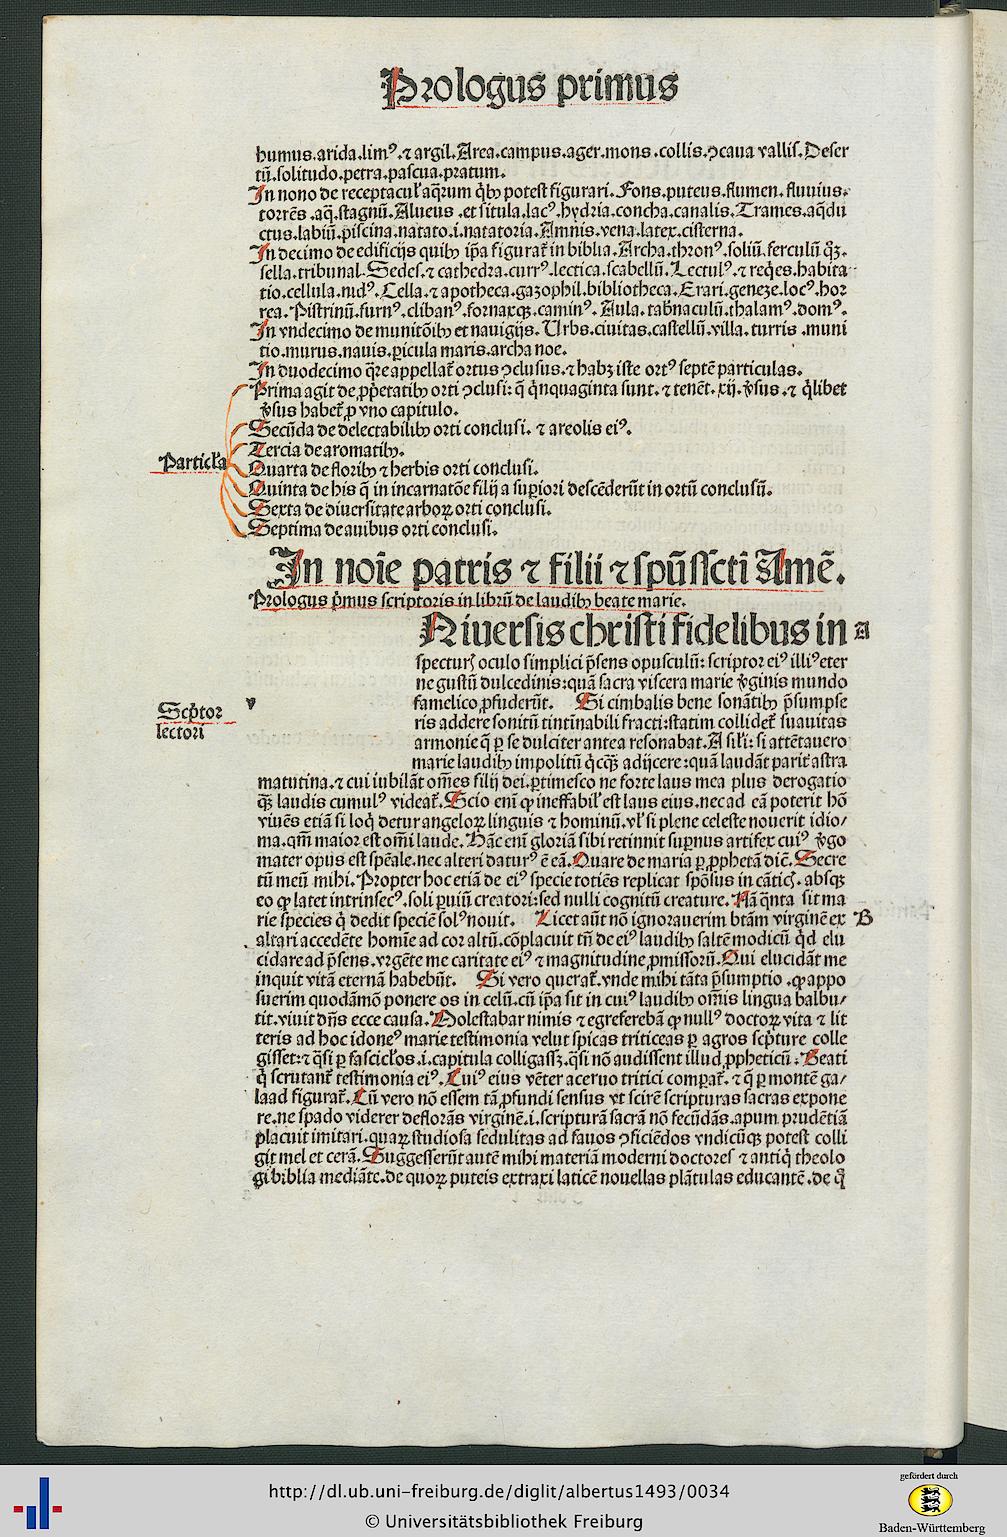 Prologus primus
humus.arida.limꝰ.⁊ argil.Area.campus.ager.mons.collis.ꝯcaua vallis.Deser
tū.solitudo.petra.pascua.pratum.
In nono de receptacul̓ aq̄rum q̄bꝫ potest figurari.Fons.puteus.flumen.fluuius.
torrēs.aq̄.stagnū.Alueus.et situla.lacꝰ.hydria.concha.canalis.Trames.aq̄du
ctus.labiū.piscina.natato.i.natatoria.Amnis.vena.latex.cisterna.
In decimo de edificijs quibꝫ ip̄a figurat̄ in biblia.Archa.thronꝰ.soliū.ferculū q̄ꝫ.
sella.tribunal.Sedes.⁊ cathedra.currꝰ.lectica.scabellū.Lectulꝰ.⁊ req̄es.habita
tio.cellula.nidꝰ.Cella.⁊ apotheca.gazophil.bibliotheca.Erari.geneze.locꝰ.hor
rea.Pistrinū.furnꝰ.clibanꝰ.fornaxqꝫ.caminꝰ.Aula.tab̄naculū.thalamꝰ.domꝰ.
In vndecimo de munitōibꝫ et nauigijs.Urbs.ciuitas.castellū.villa.turris.muni
tio.murus.nauis.ꝑicula maris.archa noe.
In duodecimo q̄re appellat̄ ortus ꝯclusus.⁊ habꝫ iste ortꝰ septē particulas.
Prima agit de ꝓp̄etatibꝫ orti ꝯclusi: q̄ q̄nquaginta sunt.⁊ tenēt.xij.v̄sus.⁊ q̄libet
v̄sus habet̄ ꝓ vno capitulo.
Secūda de delectabilibꝫ orti conclusi.⁊ areolis eiꝰ.
Tercia de aromatibꝫ.
Particl̓a
Quarta de floribꝫ ⁊ herbis orti conclusi.
Quinta de his q̄ in incarnatōe filij a suꝑiori descēderūt in ortū conclusū.
Sexta de diuersitate arboꝝ orti conclusi.
Septima de auibus orti conclusi.
In noīe patris ⁊ filii ⁊ spū ssctī Amē.
Prologus p̄mus scriptoris in librū de laudibꝫ beate marie.
Niuersis christi fidelibus in A
specturꝭ oculo simplici p̄sens opusculū: scriptor eiꝰ illiꝰ eter
ne gustū dulcedinis: quā sacra viscera marie v̄ginis mundo
v
famelico ꝓfuderūt. Si cimbalis bene sonātibꝫ p̄sumpse
Scp̄tor
lectori
ris addere sonitū tintīnabili fracti: statim collidet̄ suauitas
armonie q̄ ꝑ se dulciter antea resonabat. A sil̓i: si attētauero
marie laudibꝫ impolitū q̄cqꝫ adijcere: quā laudāt parit̄ astra
matutina.⁊ cui iubilāt om̄es filij dei.ꝑtimesco ne forte laus mea plus derogatio
qꝫ laudis cumulꝰ videat̄.Scio enī ꝙ ineffabil̓ est laus eius.nec ad eā poterit hō
viuēs etiā si loq̄ detur angeloꝝ linguis ⁊ hominū.vl̓ si plene celeste nouerit idio/
ma.qm̄ maior est om̄i laude.Hāc enī gloriā sibi retinuit suꝑnus artifex cuiꝰ v̄go
mater opus est spēale.nec alteri daturꝰ ē eā.Quare de maria ꝑ ꝓphetā dic̄.Secre
tū meū mihi.Propter hoc etiā de eiꝰ specie totiēs replicat spōsus in cātic̄.absqꝫ
eo ꝙ latet intrinsecꝰ.soli ꝑuiū creatori: sed nulli cognitū creature.Nā q̄nta sit ma
rie species q̄ dedit speciē solꝰ nouit. Licet aūt nō ignorauerim btām virginē ex B
altari accedēte homīe ad cor altū.cōplacuit tn̄ de eiꝰ laudibꝫ saltē modicū q̄d elu
cidare ad p̄sens.vrgēte me caritate eiꝰ ⁊ magnitudine ꝓmissorū.Qui elucidāt me
inquit vitā eternā habebūt. Si vero querat̄.vnde mihi tāta p̄sumptio.ꝙ appo
suerim quodāmō ponere os in celū.cū ip̄a sit in cuiꝰ laudibꝫ om̄is lingua balbu/
tit.viuit dn̄s ecce causa.Molestabar nimis ⁊ egreferebā ꝙ nullꝰ doctoꝝ vita ⁊ lit
teris ad hoc idoneꝰ marie testimonia velut spicas triticeas ꝑ agros scp̄ture colle
gisset: ⁊ q̄si ꝑ fascicl̓os.i.capitula colligassꝫ.q̄si nō audissent illud ꝓpheticū: Beati
q̄ scrutant̄ testimonia eiꝰ.Cuiꝰ eius vēter aceruo tritici comꝑat̄.⁊ q̄ ꝑ montē ga/
laad figurat̄.Cū vero nō essem tā ꝓfundi sensus vt scirē scripturas sacras expone
re.ne spado viderer deflorās virginē.i.scripturā sacrā nō fecūdās.apum prudētiā
placuit imitari.quaꝝ studiosa sedulitas ad fauos ꝯficiēdos vndicūqꝫ potest colli
git mel et cerā.Suggesserūt autē mihi materiā moderni doctores ⁊ antiq̄ theolo
gi biblia mediāte.de quoꝝ puteis extraxi laticē nouellas plātulas educantē.de q̄
http://dl.ub.uni-freiburg.de/diglit/albertus1493/0034
© Universitätsbibliothek Freiburg
gefördert durch
Baden-Württemberg